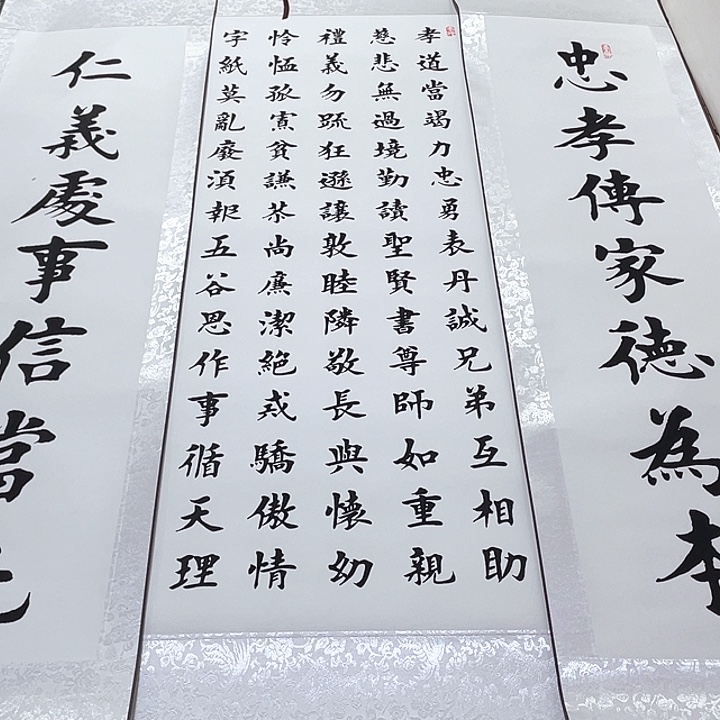 忠孝傳家徳為本
孝道當竭力忠勇表丹誠兄弟互相助
慈悲無過境勤讀聖賢書尊師如重親
禮義勿踈狂遜讓敦睦隣敬長與懷幼
怜恤孤寡貧謙恭尚廉潔絕戒驕傲情
字紙莫亂廢湏報五谷恩作事循天理
仁義處事信當先